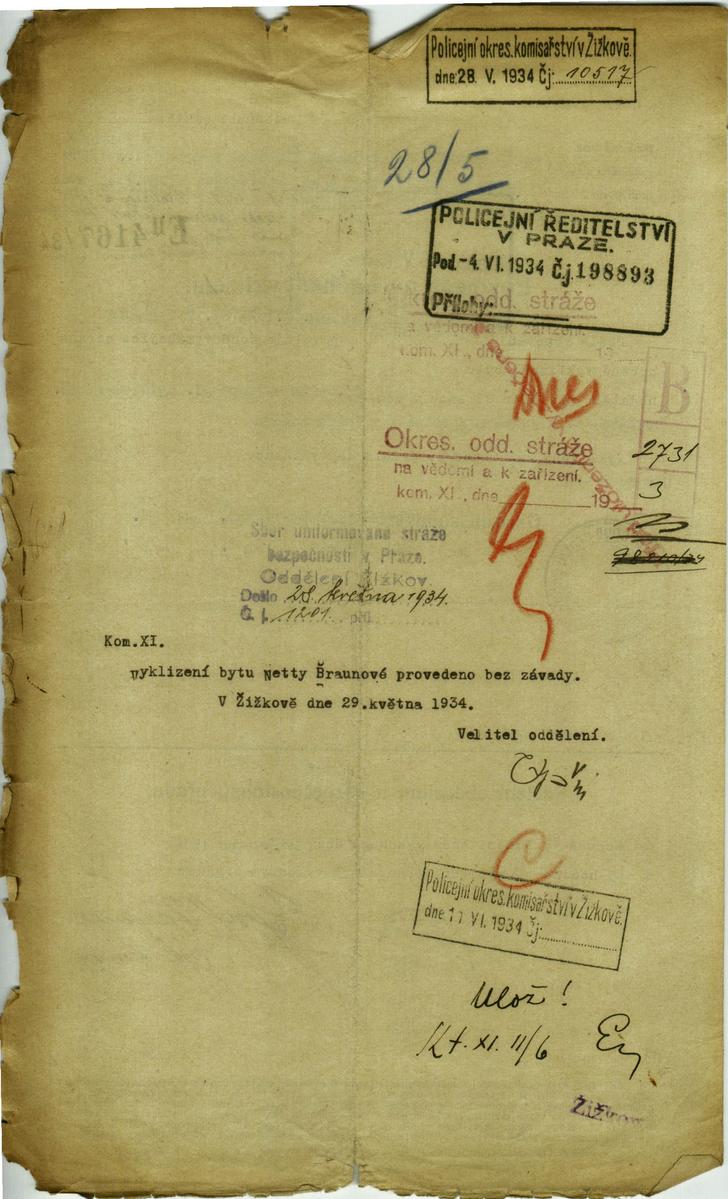 Policejní okres. komisařství v Žižkově.
dne: 28. V. 1934 Čj: 10517
28/5
POLICEJNÍ ŘEDITELSTVÍ
V PRAZE.
Pod. -4. VI. 1934 Č.j. 198893
Přílohy:
odd. stráže
a vědomí a k zařízení.
kom. XI., dne 19
Dnes
B
Okres. odd. stráže
na vědomí a k zařízení.
kom. XI., dne 19
2731
3
Sbor uniformované stráže
bezpečnosti v Praze.
Oddělení Žižkov.
Došlo 28. května 1934.
Č. j. 1201. příl.
Kom.XI.
Vyklizení bytu Netty Braunové provedeno bez závady.
V Žižkově dne 29.května 1934.
Velitel oddělení.
Policejní okres. komisařství v Žižkově.
dne 11 VI. 1934 Čj:
Ulož!
Kt. XI. 11/6
Žižkov